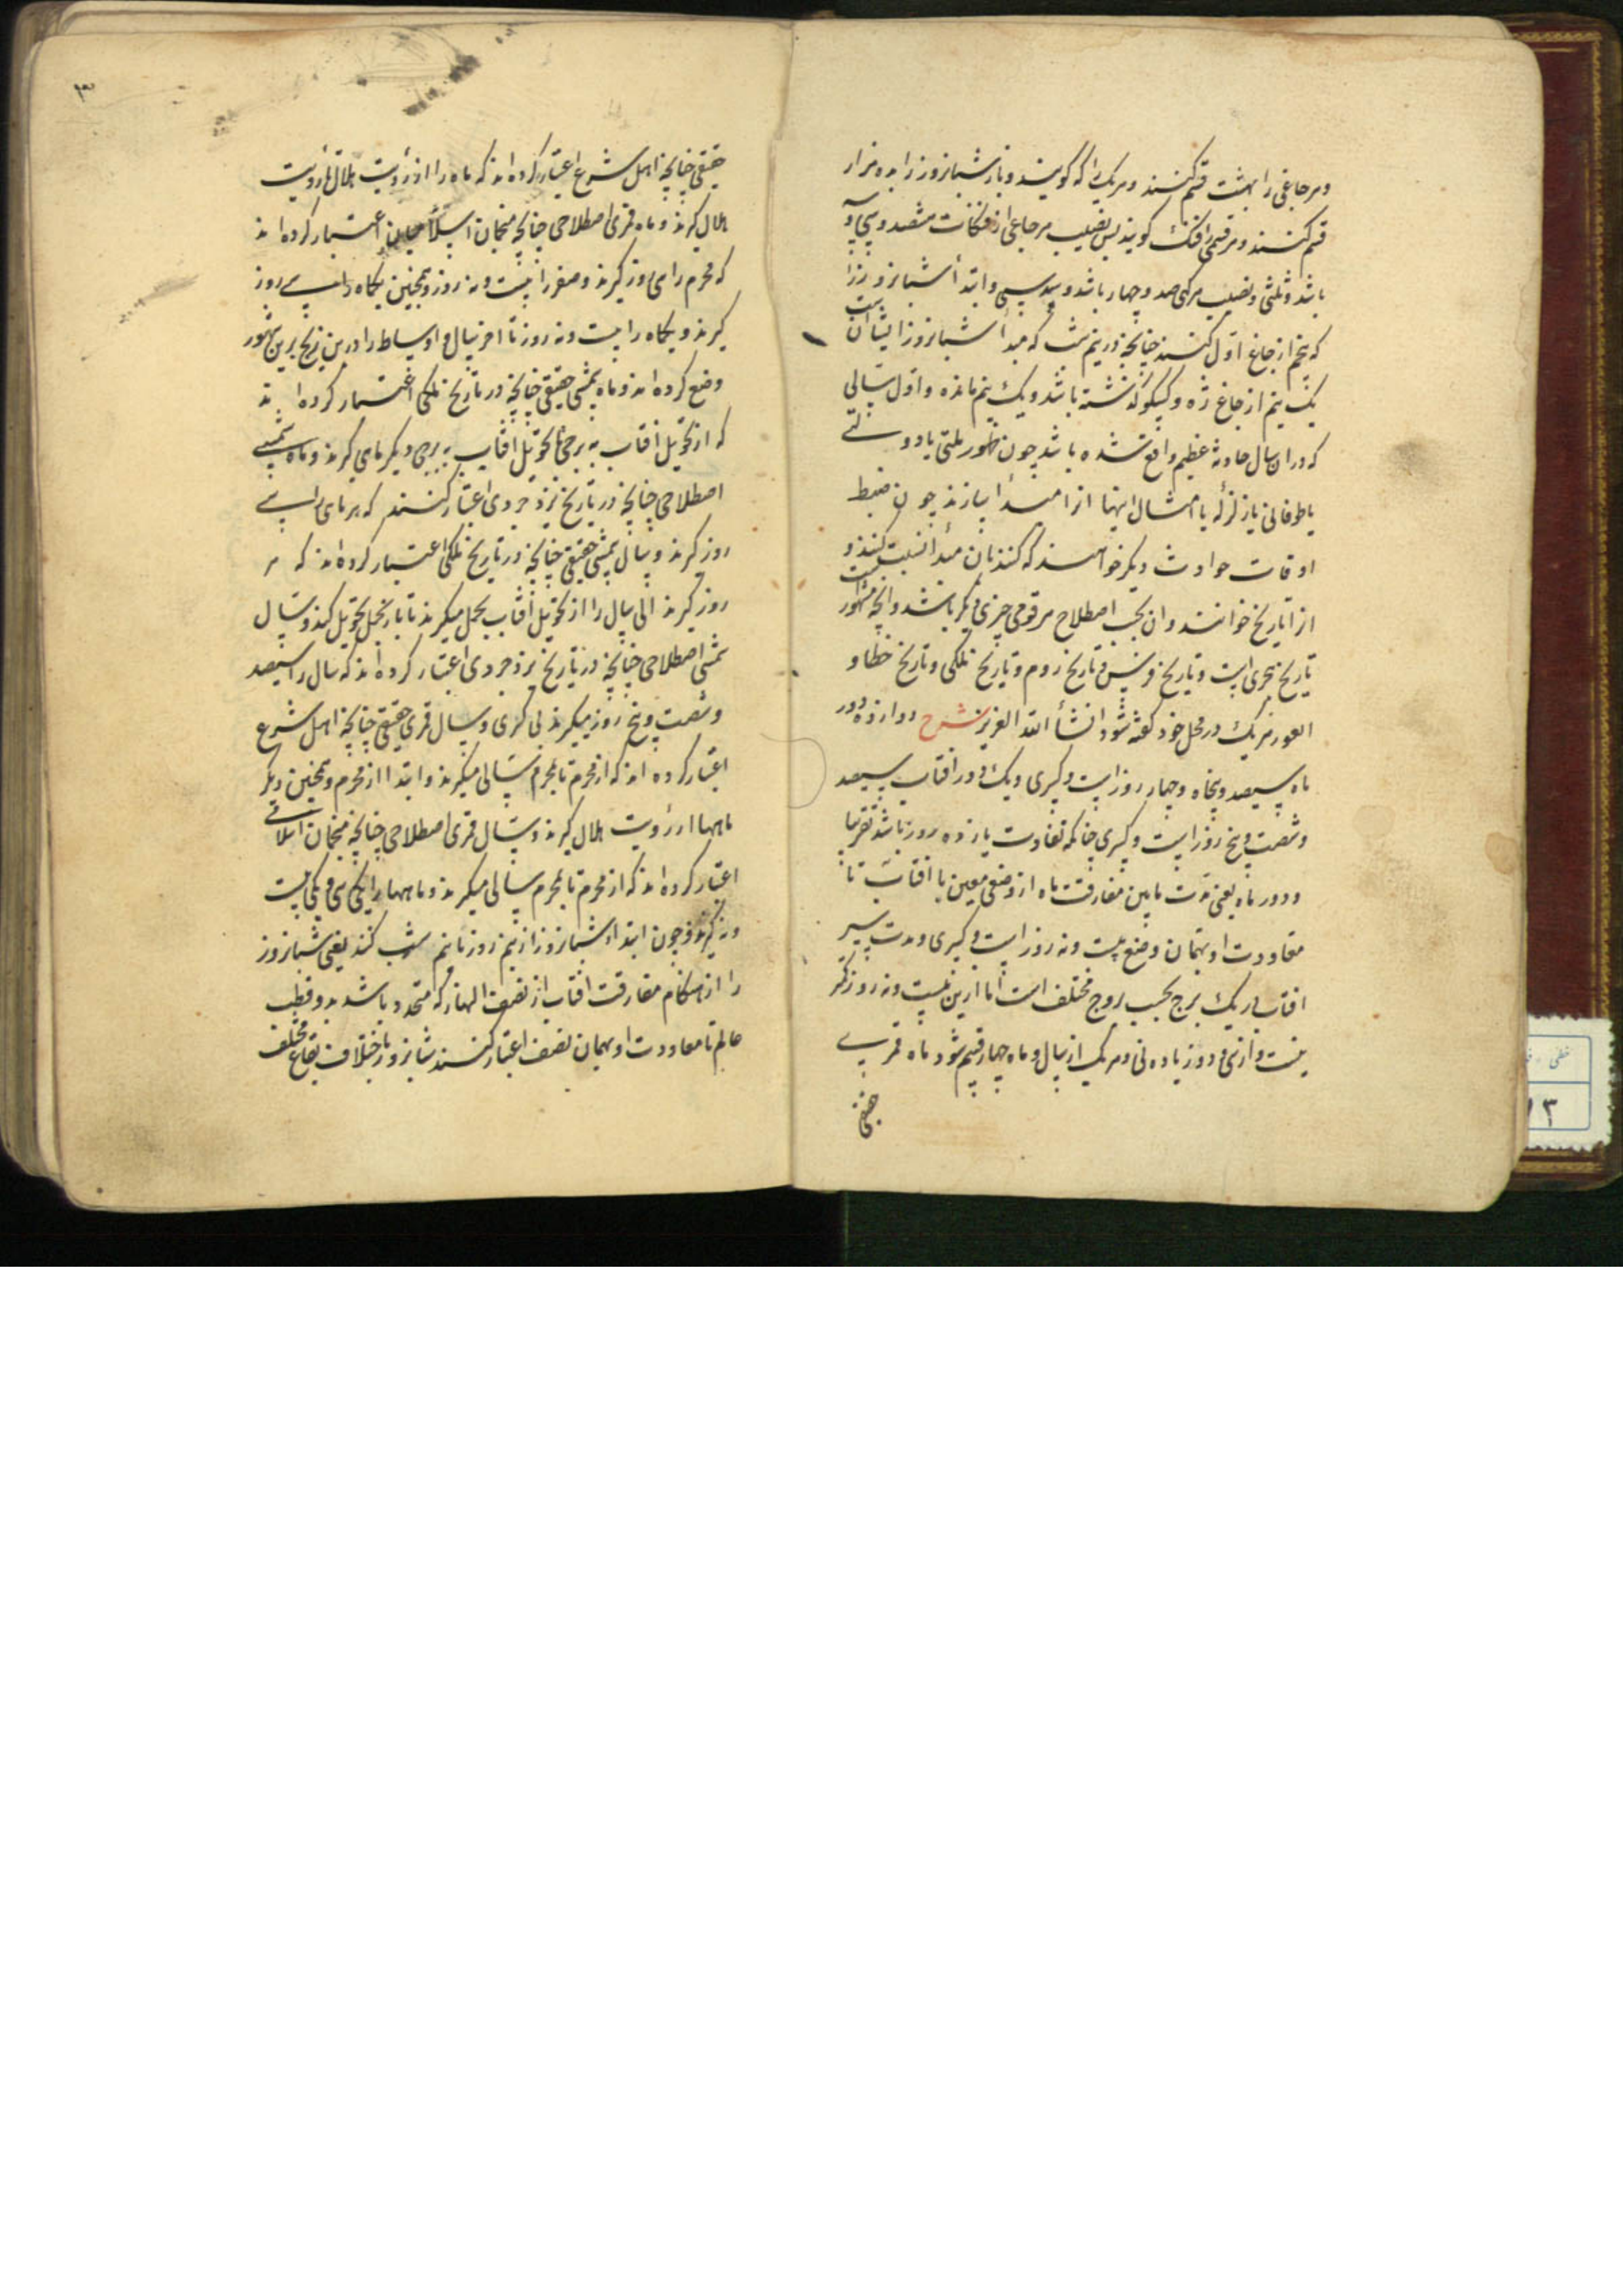 و هر جاغی را بهشت قسم کنند و هر یک را که گویند و باز شبانروز را بده هزار
قسم کنند و هر قسمی را فنک گویند پس نصیب هر جاغی از فنکات هشتصد و سی و سه
باشد و ثلثی و نصیب هر کهی صد و چهار باشد و سدسی و ابتدأ شبانروز را
که پنجم از جاغ اول کنند چنانچه در نیم شب که مبدأ شبانروز ایشان است
یک نیم از جاغ زه و کسکو گذشته باشد و یک نیم مانده و اول سالی
که در ان سال حادثه عظیم واقع شده باشد چون ظهور ملتی یا دولتی
یا طوفانی یا زلزله یا امثال اینها انرا مبدأ سازند چون ضبط
اوقات حوادث دیگر خواهند که کنند بان مبدأ نسبت کنند و
انرا تاریخ خوانند و ان بحسب اصطلاح هر قومی چیزی دیگر باشد و انچه مشهور است
تاریخ هجری است و تاریخ فرس و تاریخ روم و تاریخ ملکی و تاریخ خطا و
العور هر یک در محل خود گفته شود انشأ الله العزیز شرح دوازده دور
ماه سیصد و پنجاه و چهار روز است و کسری و یک دور افتاب سیصد
و شصت و پنج روز است و کسری چنانکه تفاوت یازده روز باشد تقریبا
و دور ماه یعنی مدت مابین مفارقت ماه از وضعی معین با افتاب تا
معاودت او بهمان وضع بیست و نه روز است و کسری و مدت سیر
افتاب در یک برج بحسب بروج مختلف است اما از بیست و نه روز کمتر
نیست و از سی و دو زیاده نی و هر یک از سال و ماه چهار قسم شود ماه قمری
حقیقی
۳
حقیقی چنانچه اهل شرع اعتبار کرده اند که ماه را از رؤیت هلال تا رؤیت
هلال گیرند و ماه قمری اصطلاحی چنانچه منجمان اسلامیان اعتبار کرده اند
که محرم را سی روز گیرند و صفر را بیست و نه روز و همچنین یکماه را سی روز
گیرند و یکماه را بیست و نه روز تا اخر سال و اوساط را درین زیج برین شهور
وضع کرده اند و ماه شمسی حقیقی چنانچه در تاریخ ملکی اعتبار کرده اند
که از تحویل افتاب به برجی تا تحویل افتاب به برجی دیگر ماهی گیرند و ماه شمسی
اصطلاحی چنانچه در تاریخ یزدجردی اعتبار کنند که هر ماهی را سی
روز گیرند و سال شمسی حقیقی چنانچه در تاریخ ملکی اعتبار کرده اند که هر
روز گیرند الی سال را از تحویل افتاب بحمل میگیرند تا باز بحمل تحویل کند و سال
شمسی اصطلاحی چنانچه در تاریخ یزدجردی اعتبار کرده اند که سال را سیصد
و شصت و پنج روز میگیرند بی کسری و سال قمری حقیقی چنانچه اهل شرع
اعتبار کرده اند که از محرم تا بمحرم سالی میگیرند و ابتدا از محرم و همچنین دیگر
ماهها از رؤیت هلال گیرند و سال قمری اصطلاحی چنانچه منجمان اسلامی
اعتبار کرده اند که از محرم تا بمحرم سالی میگیرند و ماهها را یکی سی و یکی بیست
و نه گیرند و چون ابتداء شبانروز از نیم روز تا نیم شب کنند یعنی شبانروز
را از هنگام مفارقت افتاب از نصف النهار که متحدد باشد بدو قطب
عالم تا معاودت او بهمان نصف اعتبار کنند شبانروز باختلاف بقاع مختلف